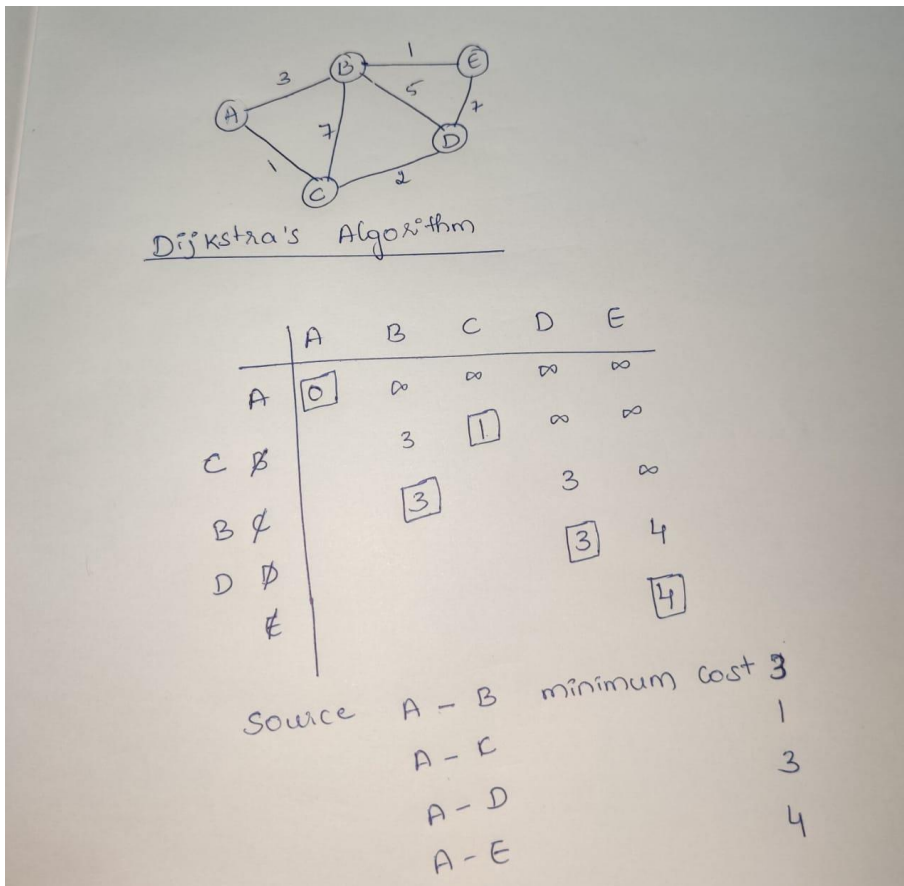 1
B
E
3
5
A
7
7
D
1
2
C
Dijkstra's Algorithm
A B C D E
A 0 ∞ ∞ ∞ ∞
C B 3 1 ∞ ∞
B C 3 3 ∞
D D 3 4
E 4
Source A - B minimum cost 3
A - C 1
A - D 3
A - E 4